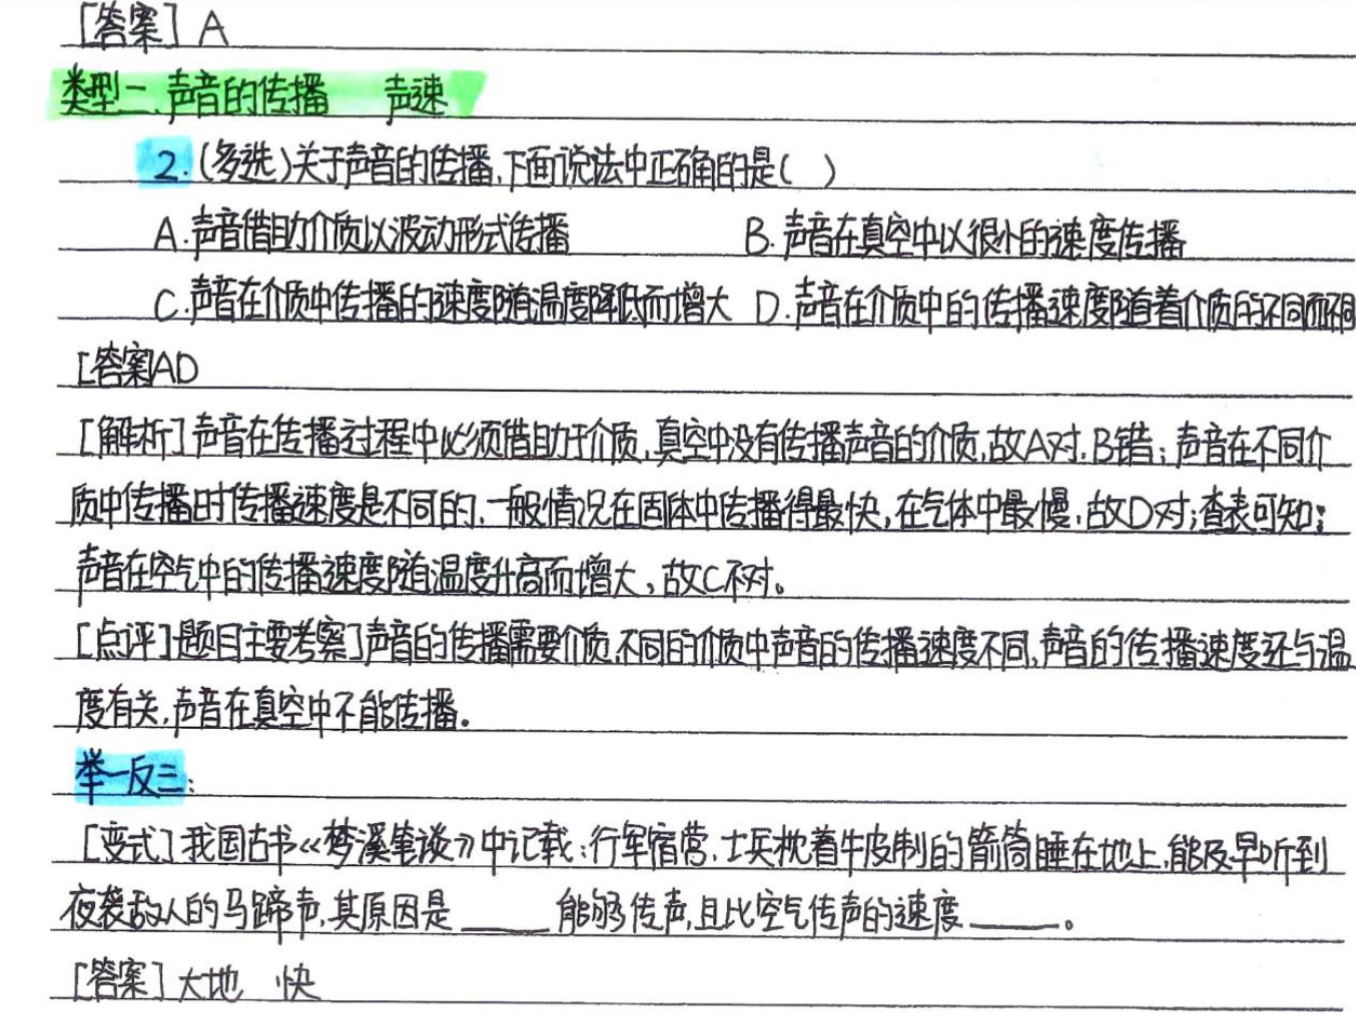 [答案] A
类型二、声音的传播 声速
2.(多选)关于声音的传播,下面说法中正确的是( )
A.声音借助介质以波动形式传播 B.声音在真空中以很小的速度传播
C.声音在介质中传播的速度随温度降低而增大 D.声音在介质中的传播速度随着介质的不同而不同
[答案]AD
[解析]声音在传播过程中必须借助于介质,真空中没有传播声音的介质,故A对,B错;声音在不同介
质中传播时传播速度是不同的,一般情况在固体中传播得最快,在气体中最慢,故D对;查表可知:
声音在空气中的传播速度随温度升高而增大,故C不对。
[点评]题目主要考察了声音的传播需要介质,不同的介质中声音的传播速度不同,声音的传播速度还与温
度有关,声音在真空中不能传播。
举一反三:
[变式]我国古书《梦溪笔谈》中记载:行军宿营,士兵枕着牛皮制的箭筒睡在地上,能及早听到
夜袭敌人的马蹄声,其原因是____能够传声,且比空气传声的速度____。
[答案]大地 快